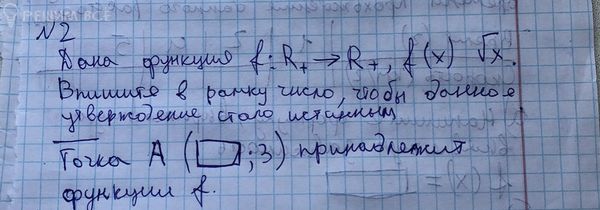 РЕШКА ВСЁ
N2
Дана функция f: R₊ → R₊, f(x) √x.
Впишите в рамку число, чтобы данное
утверждение стало истинным
Точка A ( ;3) принадлежит
функции f.
f(x) =